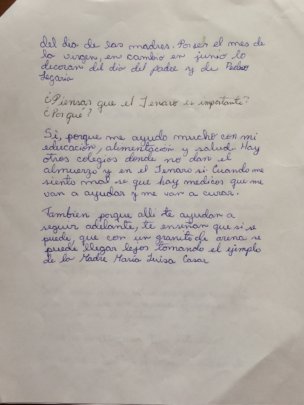 del dia de las madres. Por ser el mes de
la virgen, en cambio en junio lo
decoran del dia del padre y de Pedro
Legaria
¿Piensas que el Jenaro es importante?
¿Por que?
Si, porque me ayudo mucho con mi
educacion, alimentacion y salud. Hay
otros colegios donde no dan el
almuerzo y en el Jenaro si. Cuando me
siento mal se que hay medicos que me
van a ayudar y me van a curar.
Tambien porque alli te ayudan a
seguir adelante, te enseñan que si se
puede, que con un granito de arena se
puede llegar lejos tomando el ejemplo
de la Madre Maria Luisa Casar